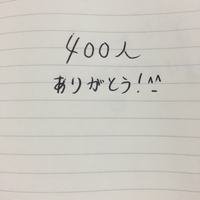 400人
ありがとう!^^